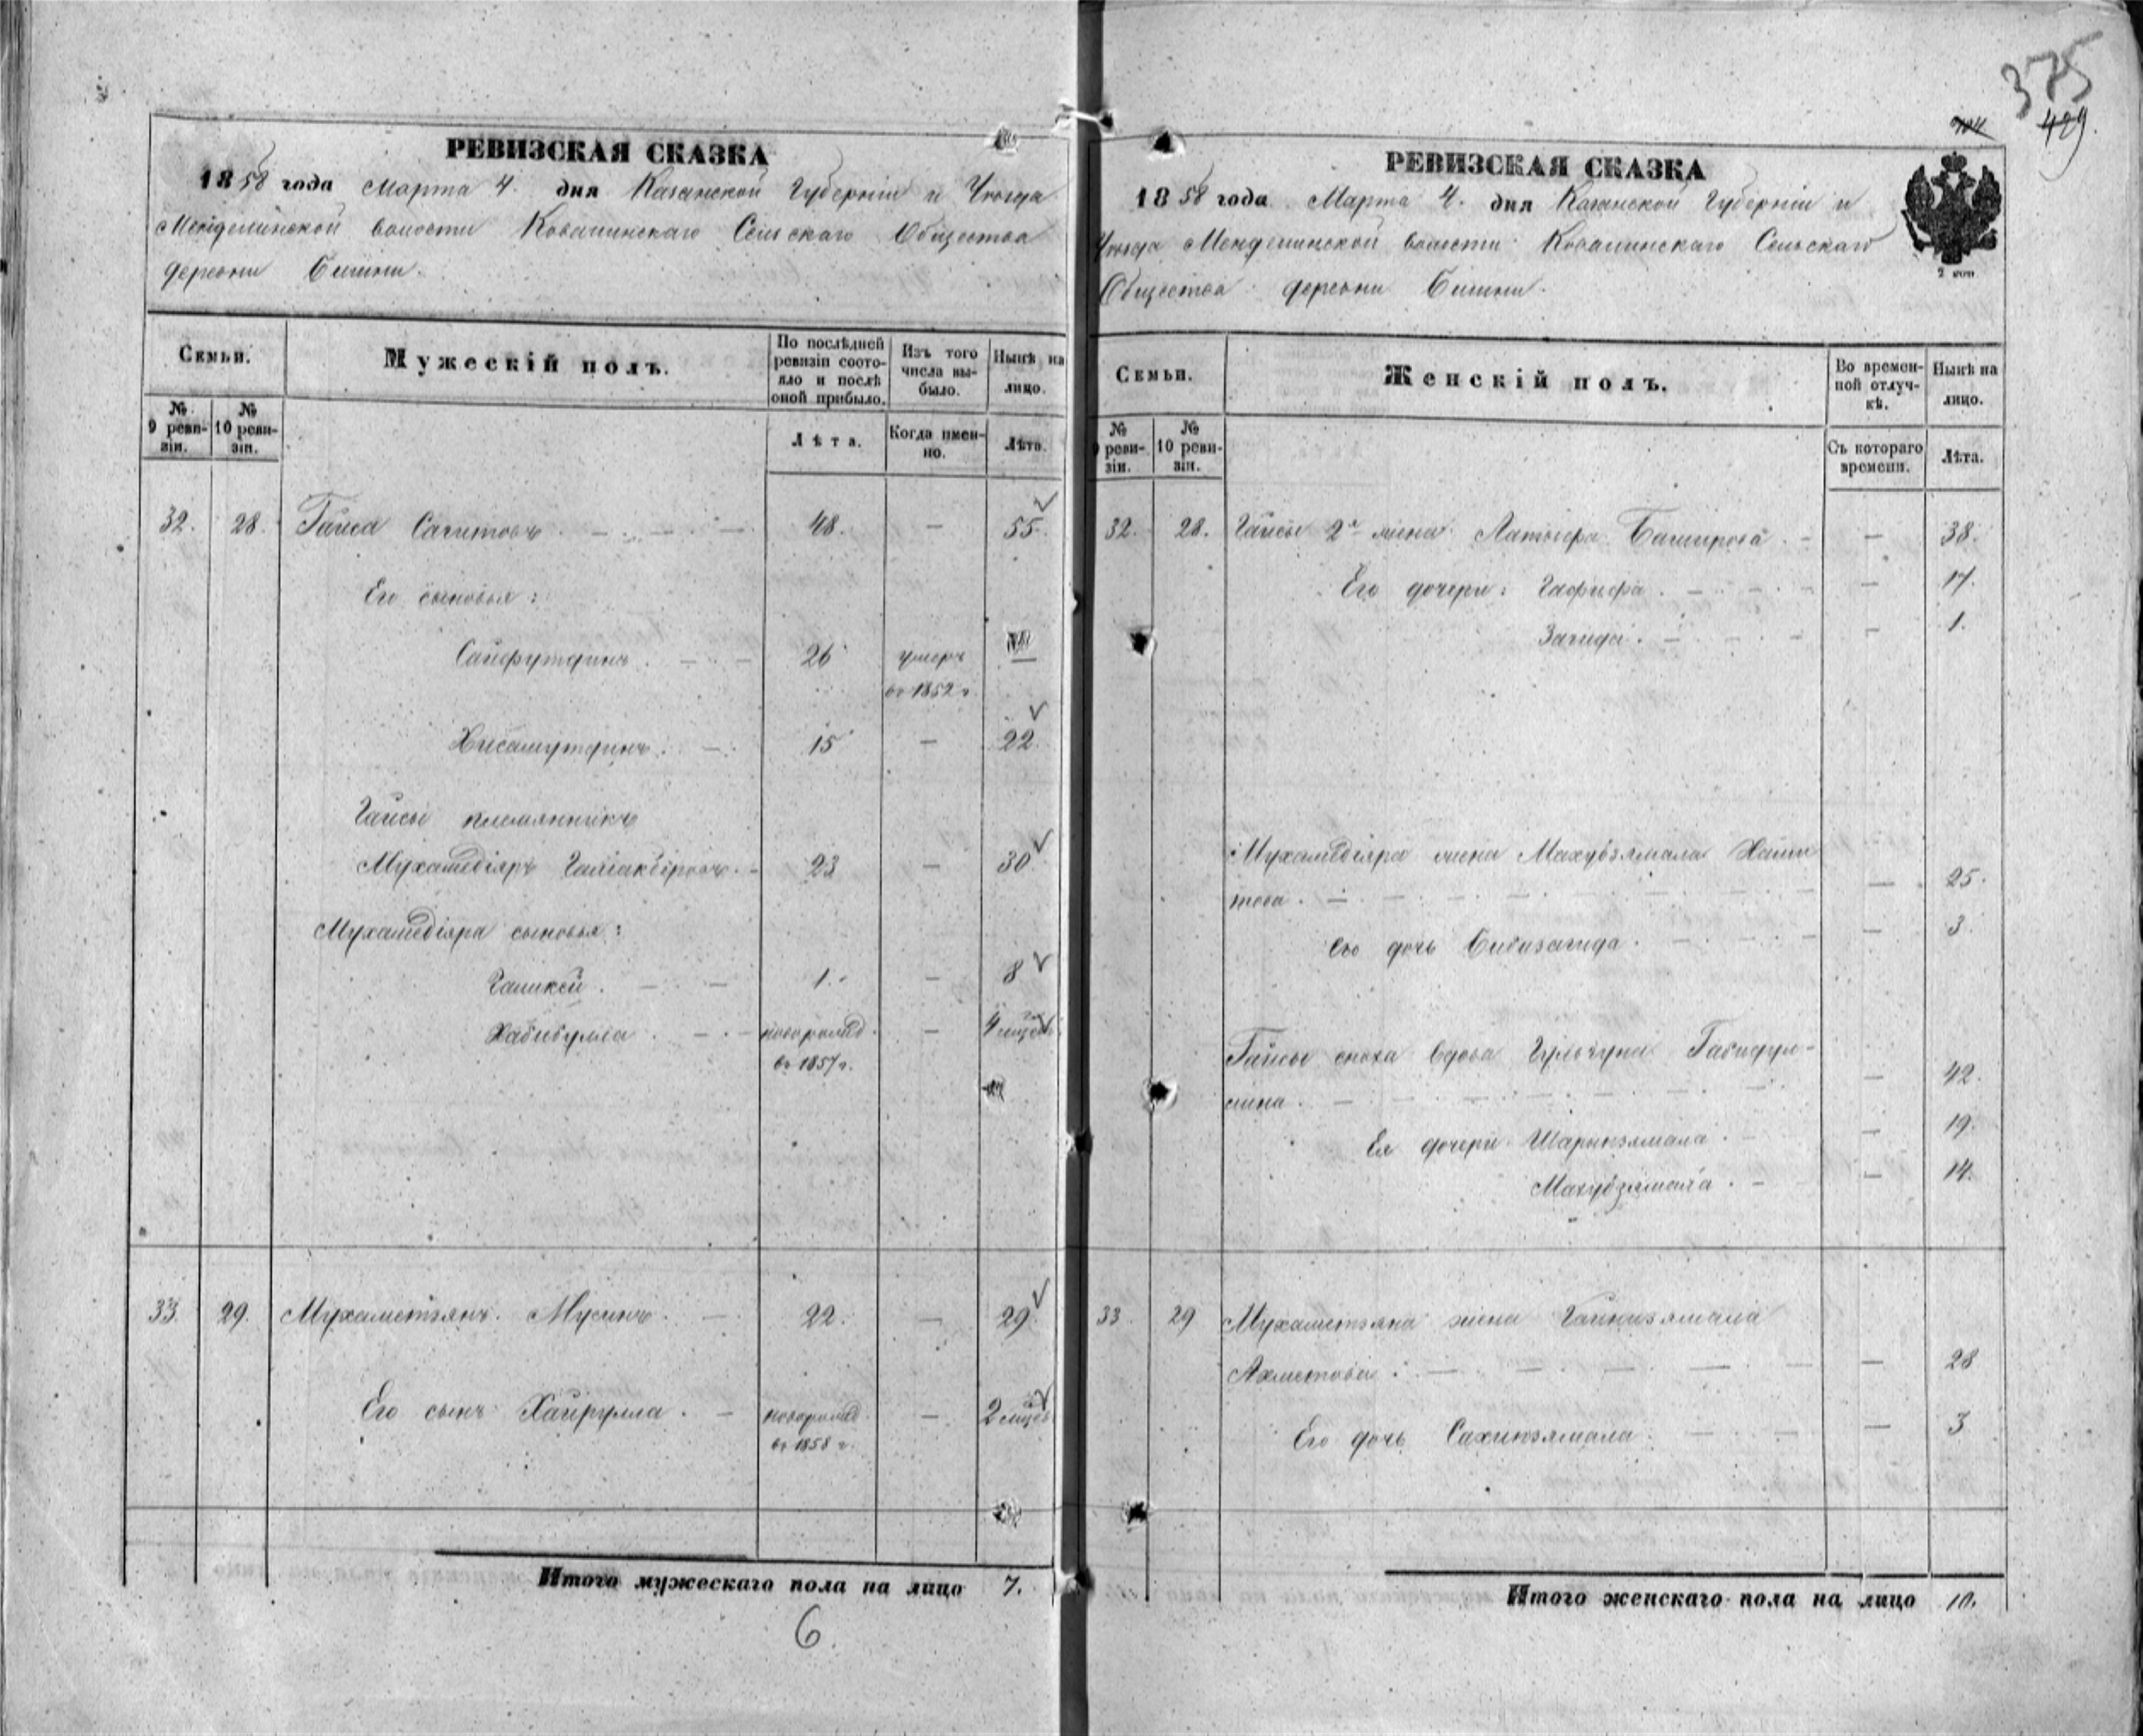 375
429.
РЕВИЗСКАЯ СКАЗКА
1858 года Марта 4. дня Казанской Губернiи и Уѣзда
Менделинской волости Ковалинскаго Сельскаго Общества
деревни
Семьи.
Мужескiй полъ.
По послѣдней ревизiи состояло и послѣ оной прибыло.
Изъ того числа выбыло.
Нынѣ на лицо.
№ 9 ревизiи.
№ 10 ревизiи.
Лѣта.
Когда именно.
Лѣта.
32. 28. Гайса Сагитовъ 48. — 55.
Его сыновья:
Сайфутдинъ 26 умеръ —
въ 1852 г.
Хисамутдинъ 15 — 22.
Гайсы племянникъ
Мухамедiяръ Галiакбировъ 23 — 30
Мухамедiяра сыновья:
Галикей 1. — 8
Хабибулла новорожд. — 4
въ 1857 г.
33. 29. Мухаметзянъ Мусинъ 22. — 29.
Его сынъ Хайрулла новорожд. — 2
въ 1858 г.
Итого мужескаго пола на лицо 7.
6.
РЕВИЗСКАЯ СКАЗКА
1858 года Марта 4. дня Казанской Губернiи и
Уѣзда Менделинской волости Ковалинскаго Сельскаго
Общества деревни
2 коп
Семьи.
Женскiй полъ.
Во временной отлучкѣ.
Нынѣ на лицо.
№ 9 ревизiи.
№ 10 ревизiи.
Съ котораго времени.
Лѣта.
32. 28. Гайсы 2я жена Латыфа Баширова — 38.
Его дочери: Гафифа — 17.
Загида — 1.
Мухамедiяра жена Махубзямала Хами
това — 25.
его дочь Бибизагида — 3.
Гайсы сноха вдова Гульчуна Габидул-
лина — 42.
Ея дочери Шарипзямала — 19.
Махубзямала — 14.
33. 29 Мухаметзяна жена Гайнизямала
Ахметова — 28
Его дочь Сахипзямала — 3
Итого женскаго пола на лицо 10.